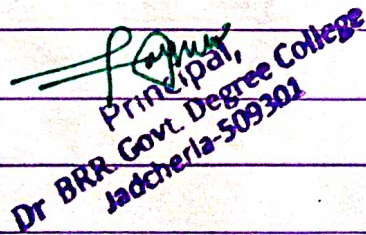 Principal,
Dr BRR Govt. Degree College
Jadcherla-509301